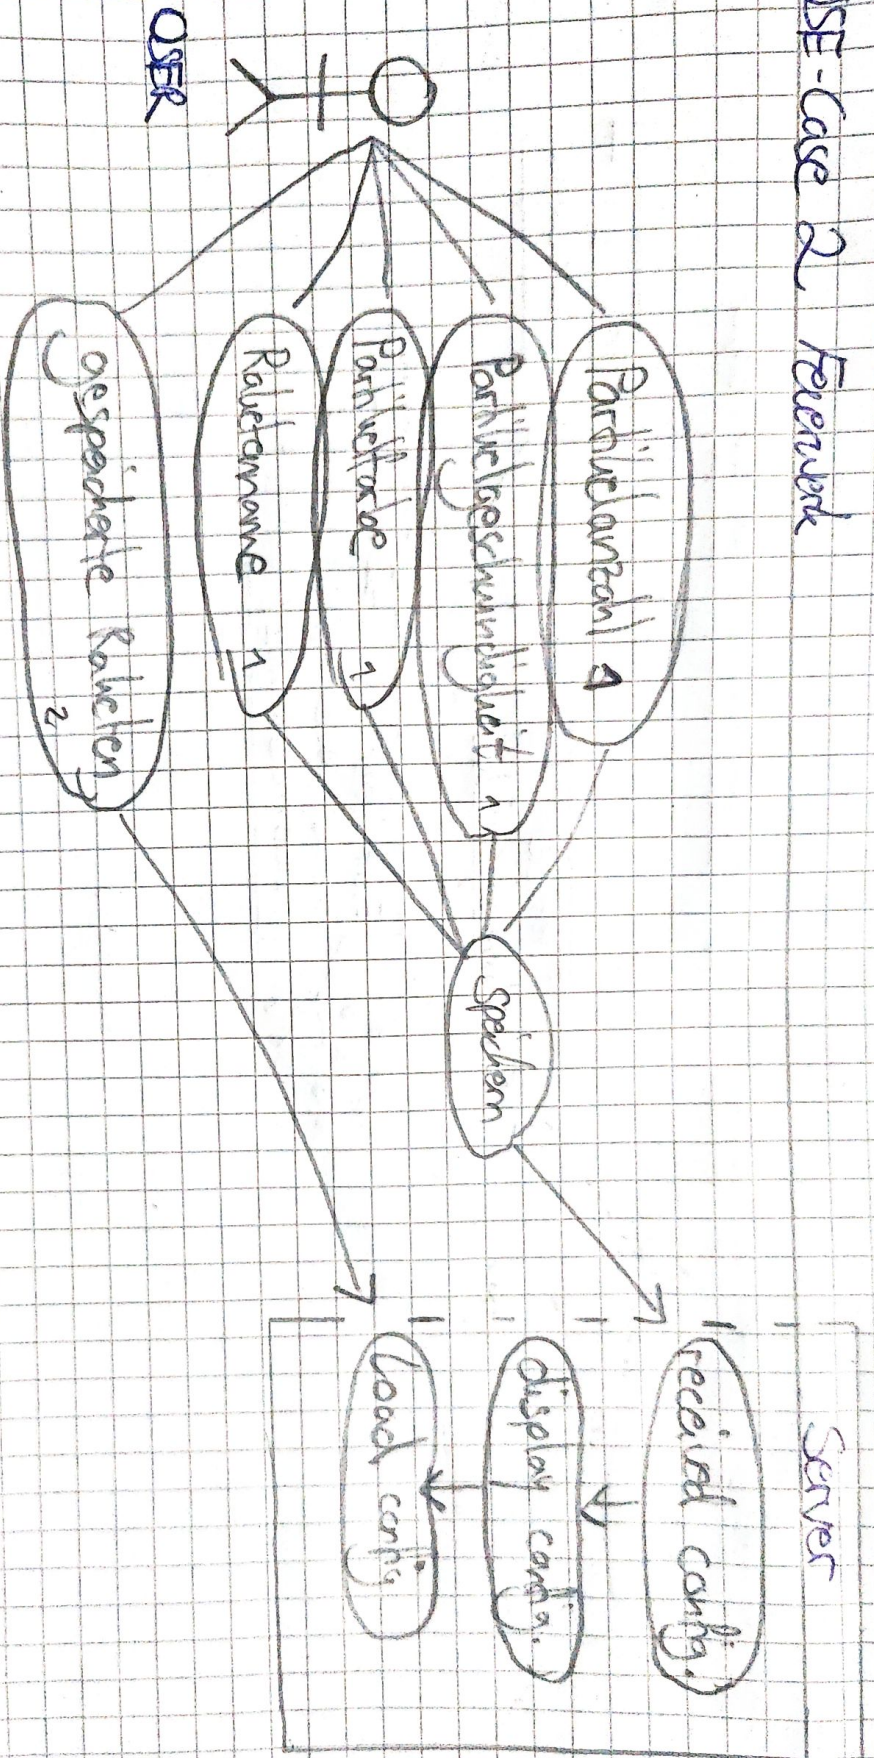 USE-Case 2 Feuerwerk
Server
Partikelanzahl 1
Partikelgeschwindigkeit 1
Partikelfarbe 1
Raketenname 1
gespeicherte Raketen
2
speichern
receivd config.
display config.
Load config
USER